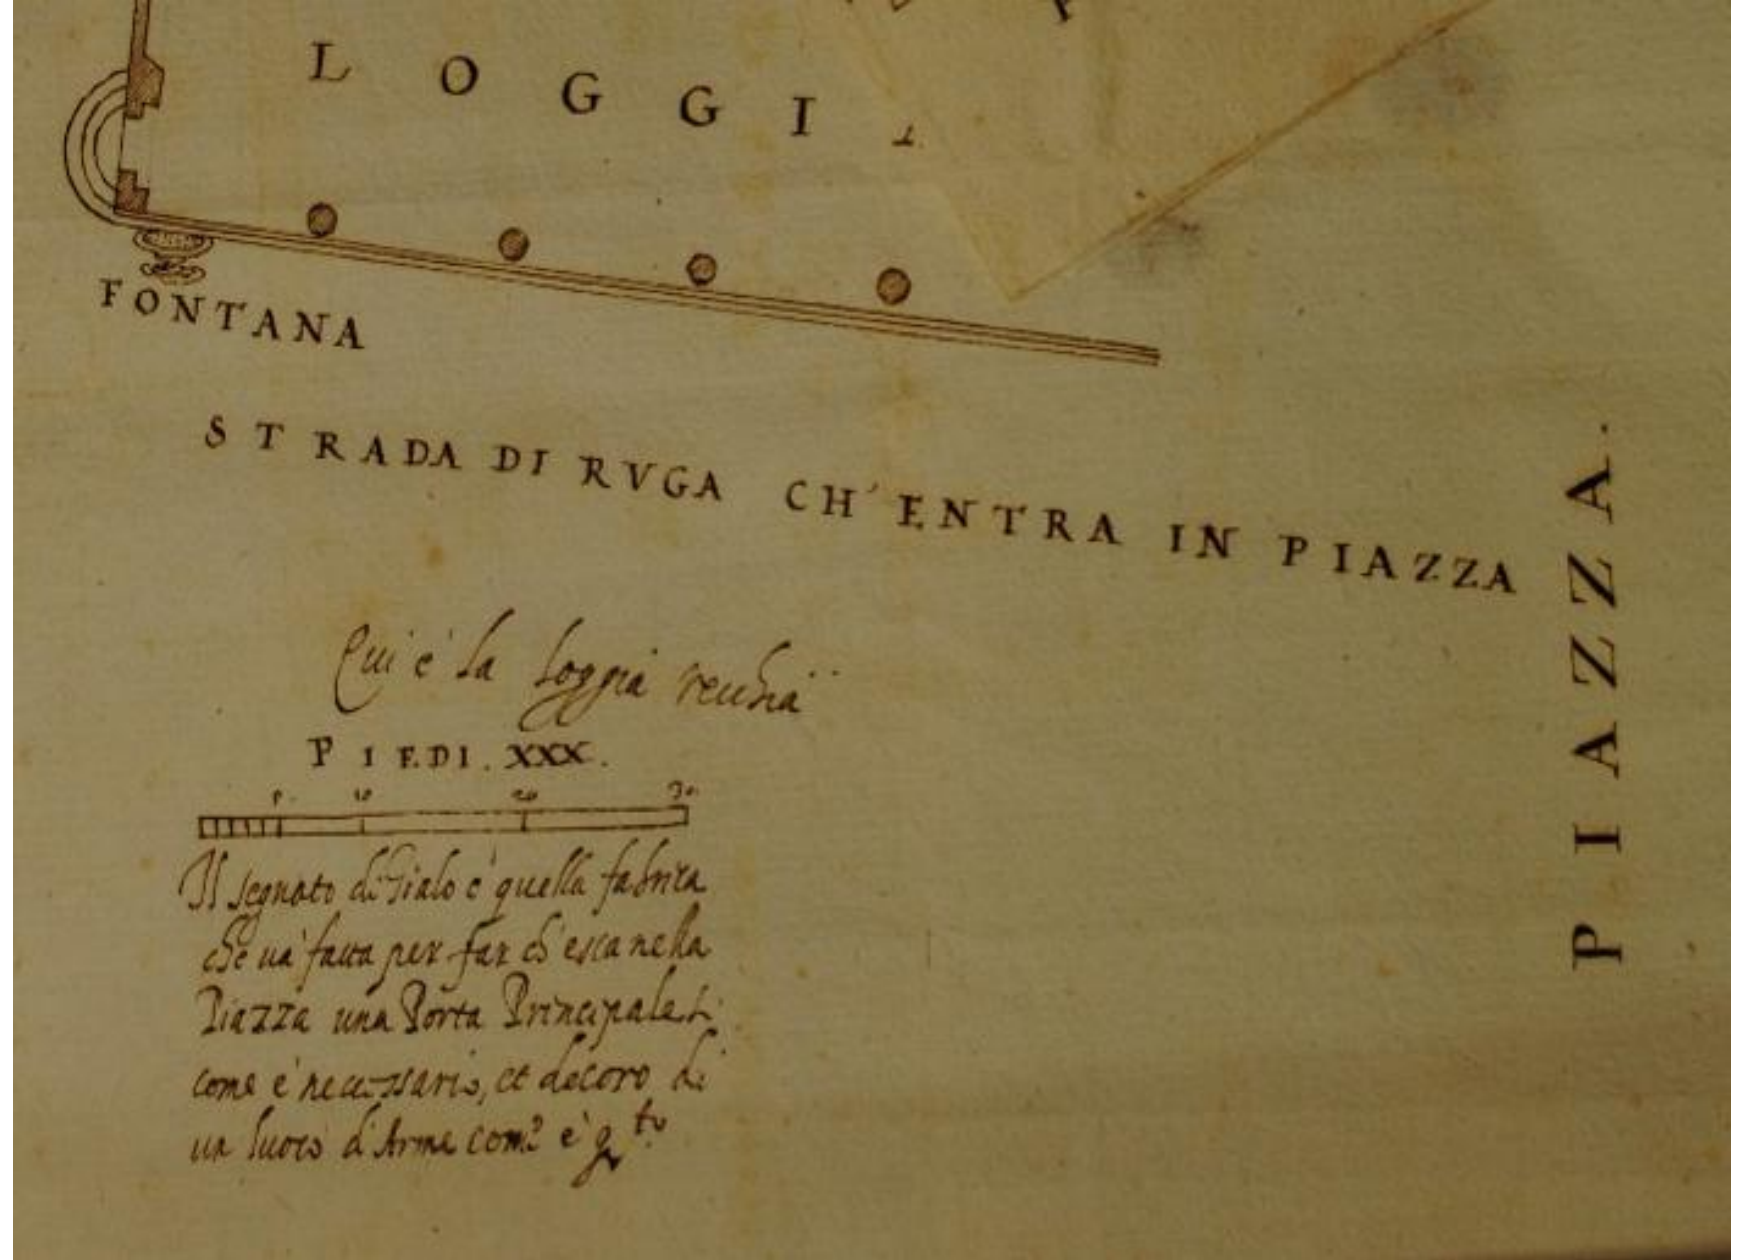 LOGGI
FONTANA
STRADA DI RVGA CH'ENTRA IN PIAZZA
PIAZZA.
Qui è la loggia vecchia
PIEDI. XXX.
5 10 20 30
Il segnato di Gialo è quella fabrica
che và fatta per far ch'esca nella
Piazza una Porta Principale si
come è necessario, et decoro di
un luoco d'Arme com.e è q.to